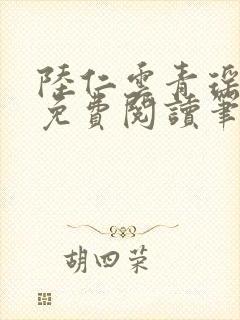 陸仁雲青瑶
免費閱讀筆
胡四荣